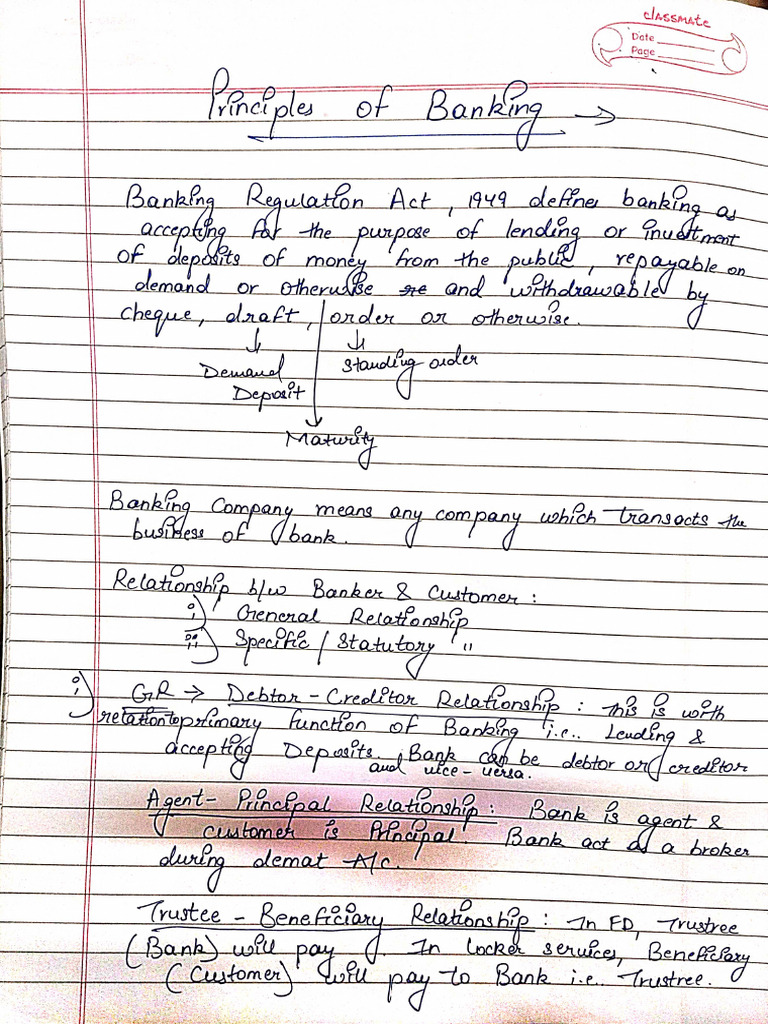 classmate
Date
Page
Principles of Banking →
Banking Regulation Act, 1949 defines banking as
accepting for the purpose of lending or investment
of deposits of money from the public, repayable on
demand or otherwise and withdrawable by
cheque, draft, order or otherwise.
↓ ↓
Demand Standing order
Deposit
Maturity
Banking Company means any company which transacts the
business of bank.
Relationship b/w Banker & Customer :
i) General Relationship
ii) Specific / Statutory "
i) GR → Debtor - Creditor Relationship : This is with
relation to primary function of Banking i.e.. Lending &
accepting Deposits. Bank can be debtor or creditor
and vice-versa.
Agent - Principal Relationship : Bank is agent &
customer is Principal. Bank act as a broker
during demat A/c.
Trustee - Beneficiary Relationship : In FD, Trustree
(Bank) will pay . In locker services, Beneficiary
(Customer) will pay to Bank i.e.. Trustree.